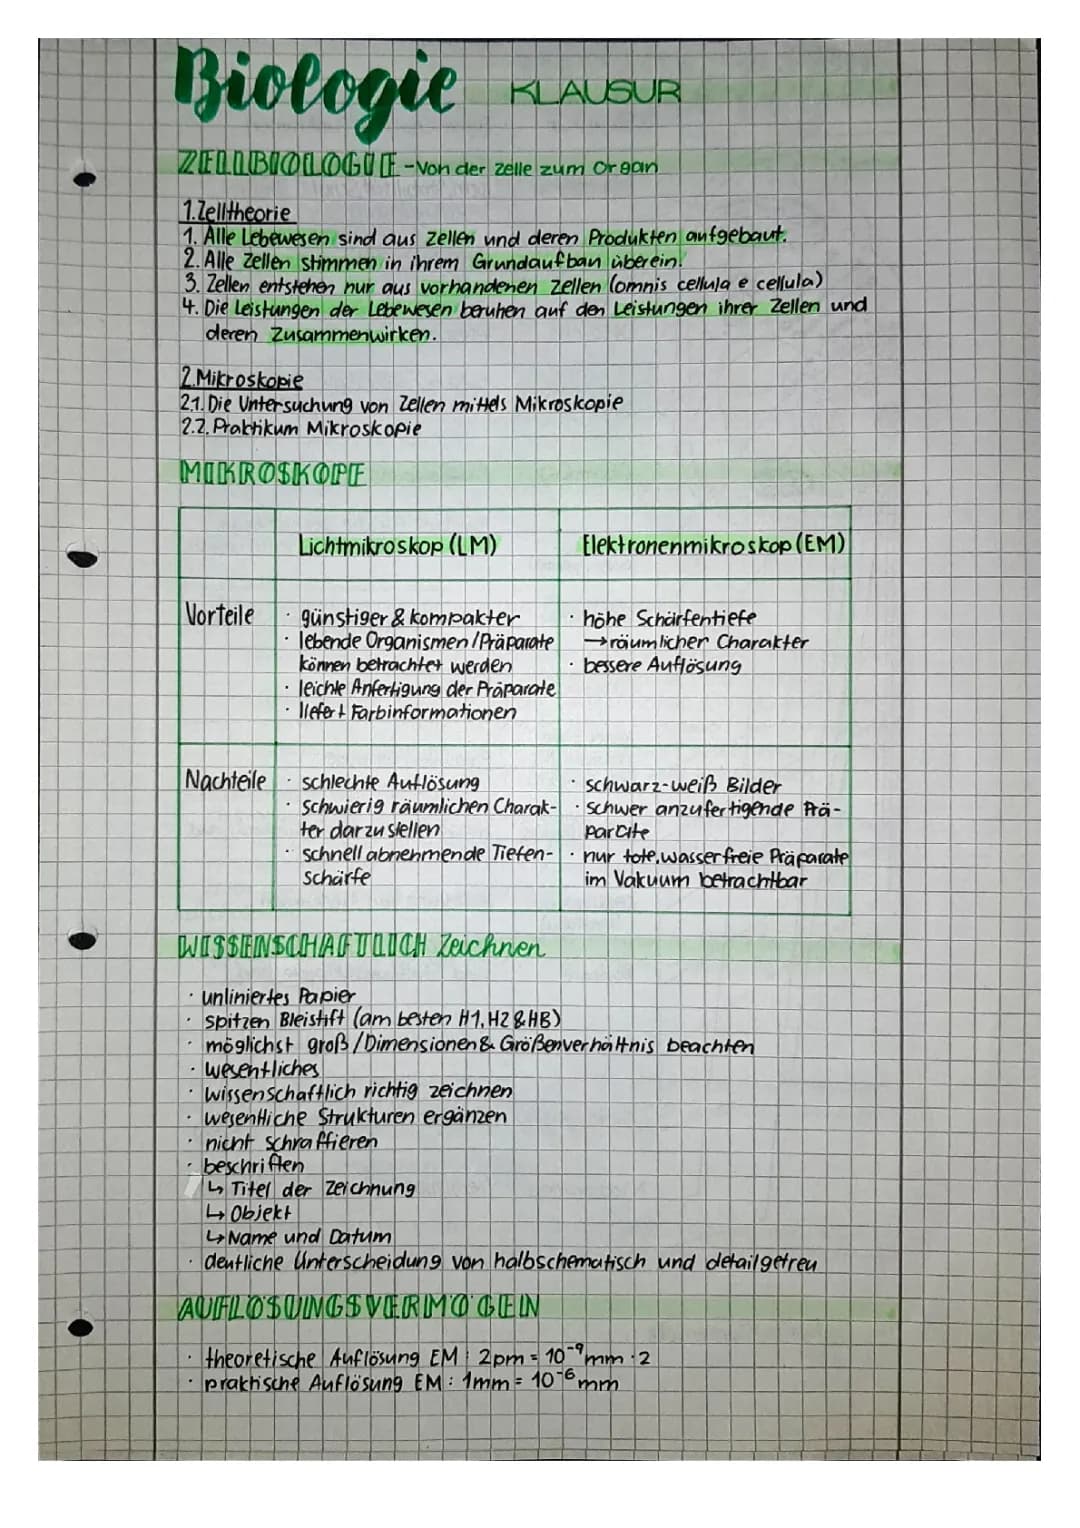 Biologie KLAUSUR
ZELLBIOLOGIE - Von der Zelle zum Organ
1. Zelltheorie
1. Alle Lebewesen sind aus Zellen und deren Produkten aufgebaut.
2. Alle Zellen stimmen in ihrem Grundaufbau überein.
3. Zellen entstehen nur aus vorhandenen Zellen (omnis cellula e cellula)
4. Die Leistungen der Lebewesen beruhen auf den Leistungen ihrer Zellen und
deren Zusammenwirken.
2. Mikroskopie
2.1. Die Untersuchung von Zellen mittels Mikroskopie
2.2. Praktikum Mikroskopie
MIKROSKOPE
Lichtmikroskop (LM)
Elektronenmikroskop (EM)
Vorteile
· günstiger & kompakter
· lebende Organismen/Präparate
können betrachtet werden
· leichte Anfertigung der Präparate
· liefert Farbinformationen
· höhe Schärfentiefe
→ räumlicher Charakter
· bessere Auflösung
Nachteile
· schlechte Auflösung
· Schwierig räumlichen Charak-
ter darzustellen
· schnell abnehmende Tiefen-
schärfe
· schwarz-weiß Bilder
· schwer anzufertigende Prä-
parate
· nur tote, wasserfreie Präparate
im Vakuum betrachtbar
WISSENSCHAFTLICH Zeichnen
· unliniertes Papier
· spitzen Bleistift (am besten H1, H2 & HB)
· möglichst groß / Dimensionen & Größenverhältnis beachten
· wesentliches
· wissenschaftlich richtig zeichnen
· wesentliche Strukturen ergänzen
· nicht schraffieren
· beschriften
↳ Titel der Zeichnung
↳ Objekt
↳ Name und Datum
· deutliche Unterscheidung von halbschematisch und detailgetreu
AUFLÖSUNGSVERMÖGEN
· theoretische Auflösung EM : 2pm = 10⁻⁹ mm · 2
· praktische Auflösung EM : 1mm = 10⁻⁶ mm